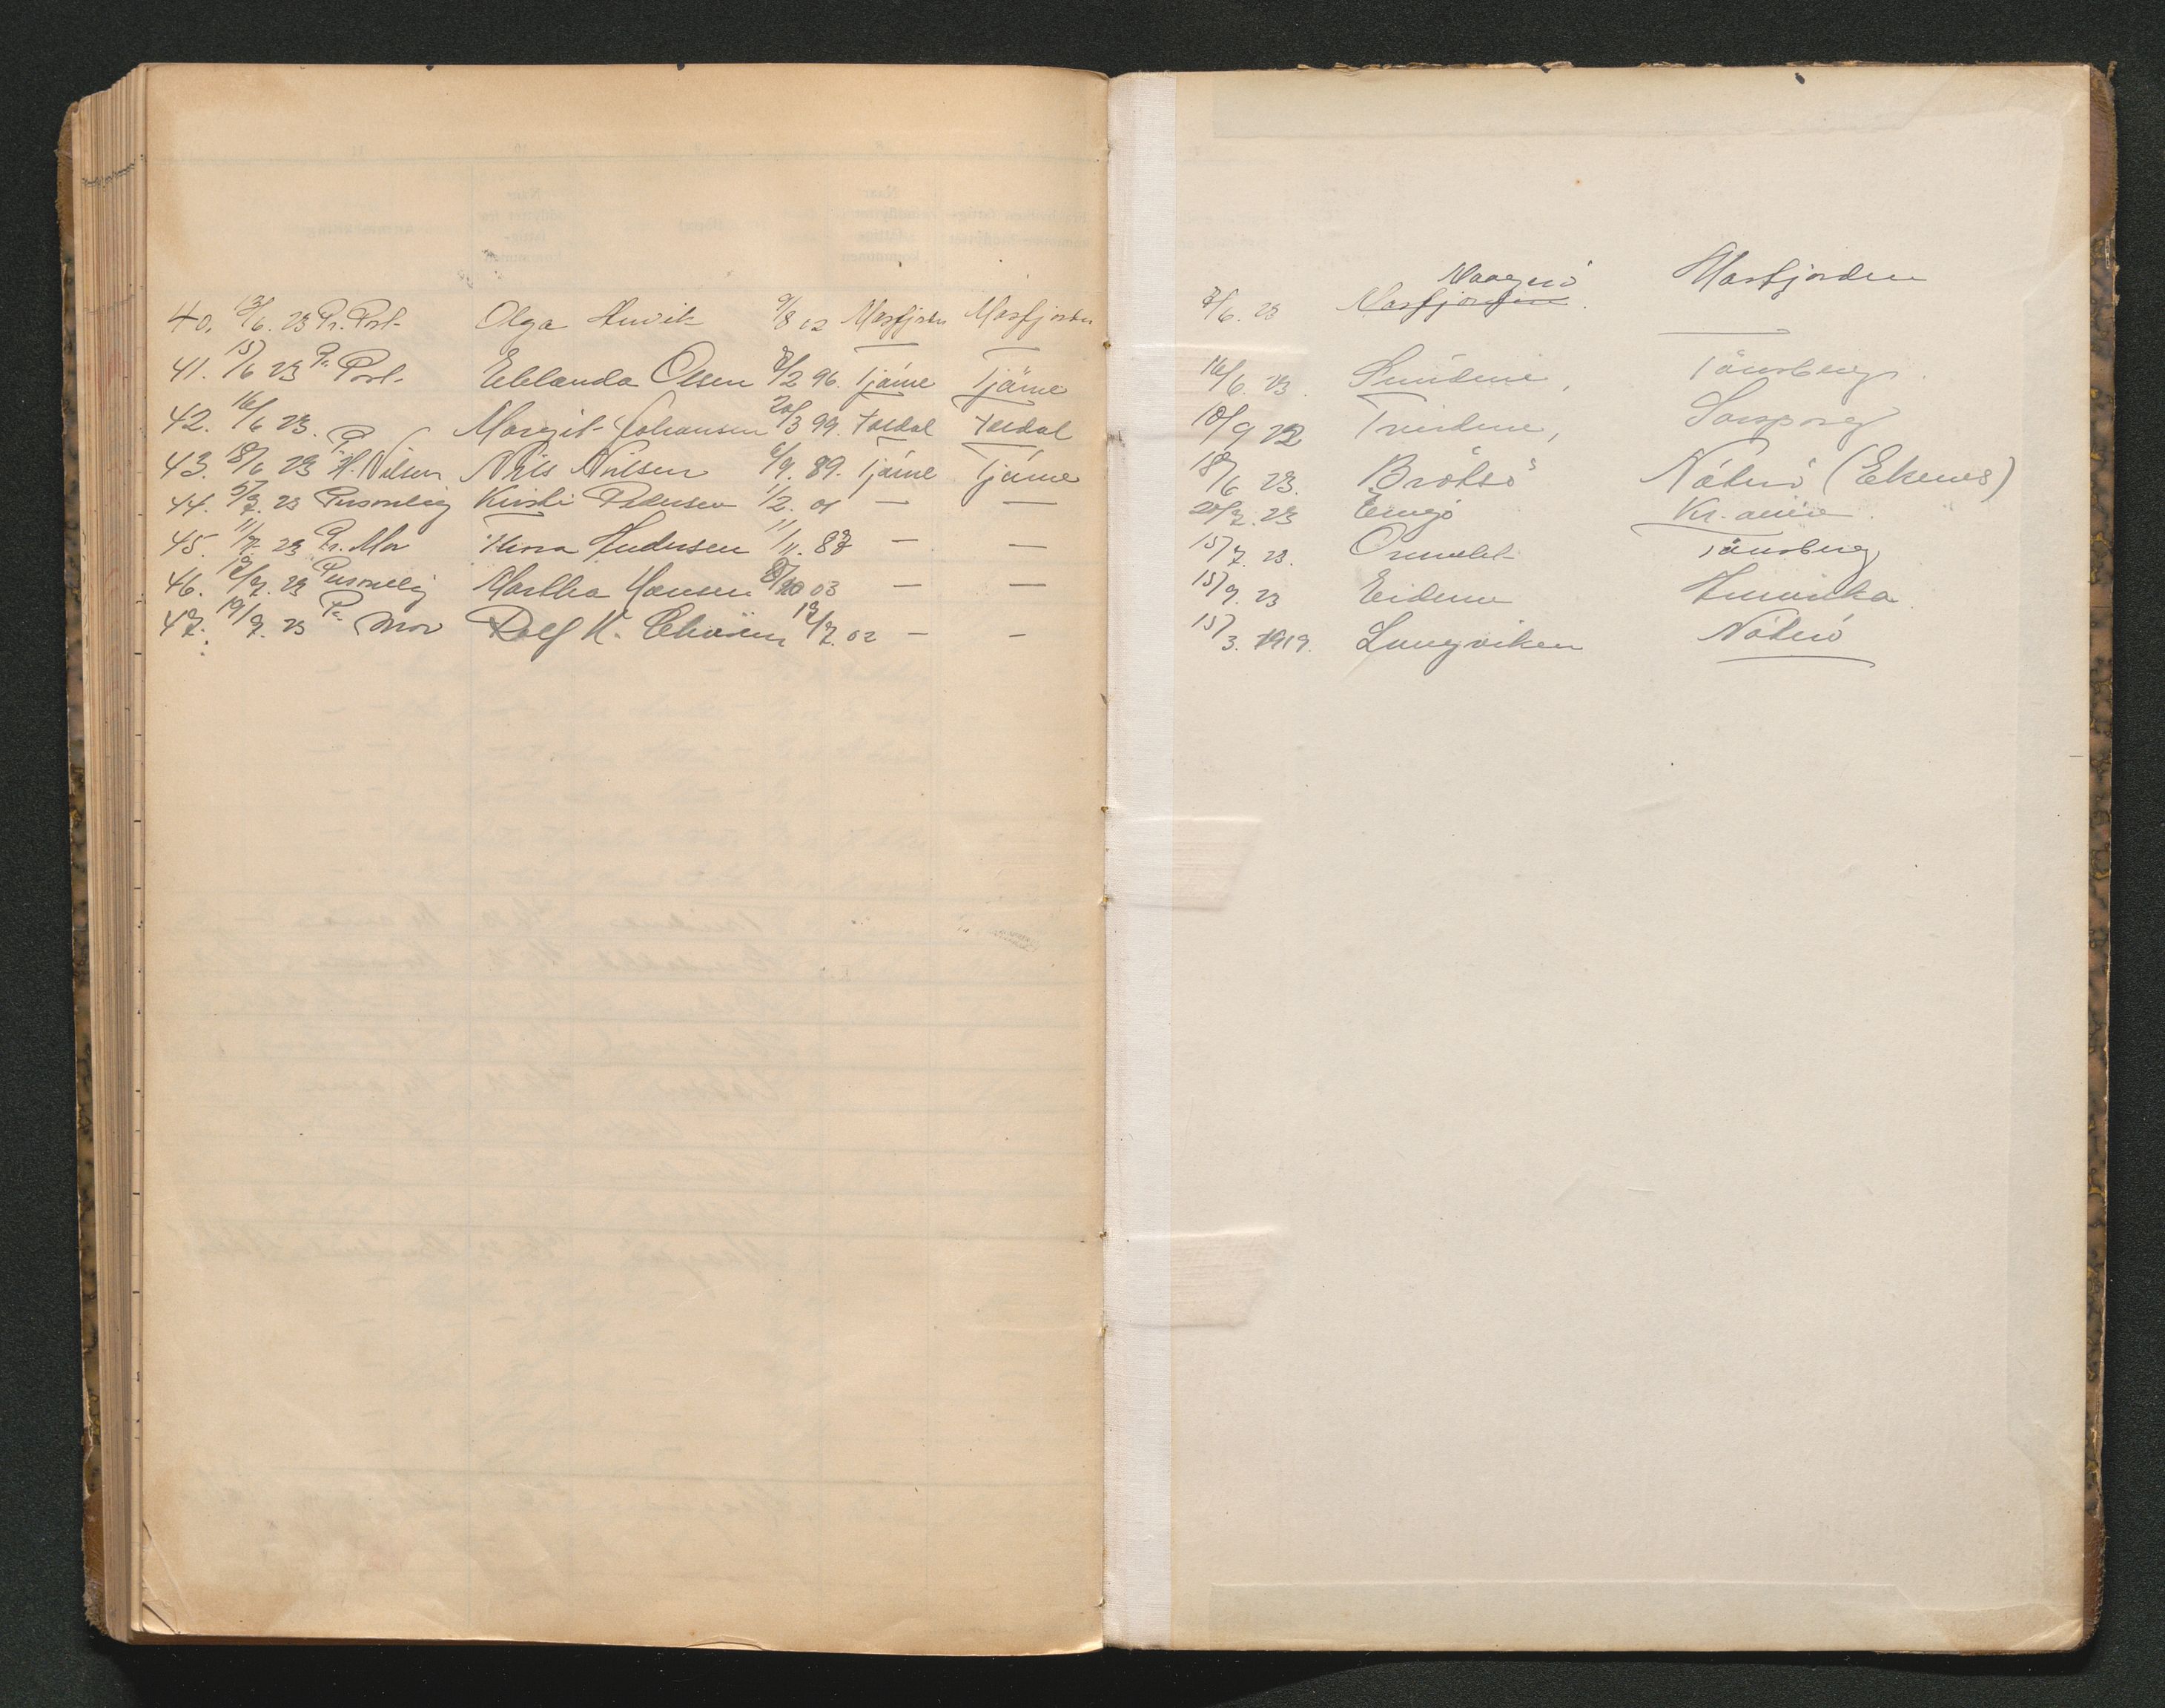 40. 13/6. 23 Pr. Post- Olga Anvik 9/8 02 Masfjorden Masfjorden
41. 15/6 23 Pr. Post- Ellanda Olsen 2/2 96. Tjøme Tjøme
42. 16/6 23. Margit Johansen 20/3 99. Foldal Foldal
43. 18/6 23 Pr H. Nilsen Nils Nilsen 6/9. 89. Tjøme Tjøme
44. 5/7. 23 Personlig Kirsti Pedersen 1/2. 01 — —
45. 11/7. 23 Pr. Mor Thora Andersen 11/11. 87 — —
46. 12/7. 23 Personlig Martha Hansen 03 — —
47. 19/7. 23 Pr Mor Rolf K. 12/7. 02 — —
Vaagnö Masfjorden
7/6. 23 Masfjorden.
16/6. 23 Tönsberg.
10/9 22 Sarpsborg
18/6 23. Brötsö Nöterö (Ekenes)
20/7. 23 Engö Kr. ania.
15/7. 23. Ormelet Tönsberg
15/9. 23 Eidene Amerika
15/3. 1919. Lungviken Nöterö